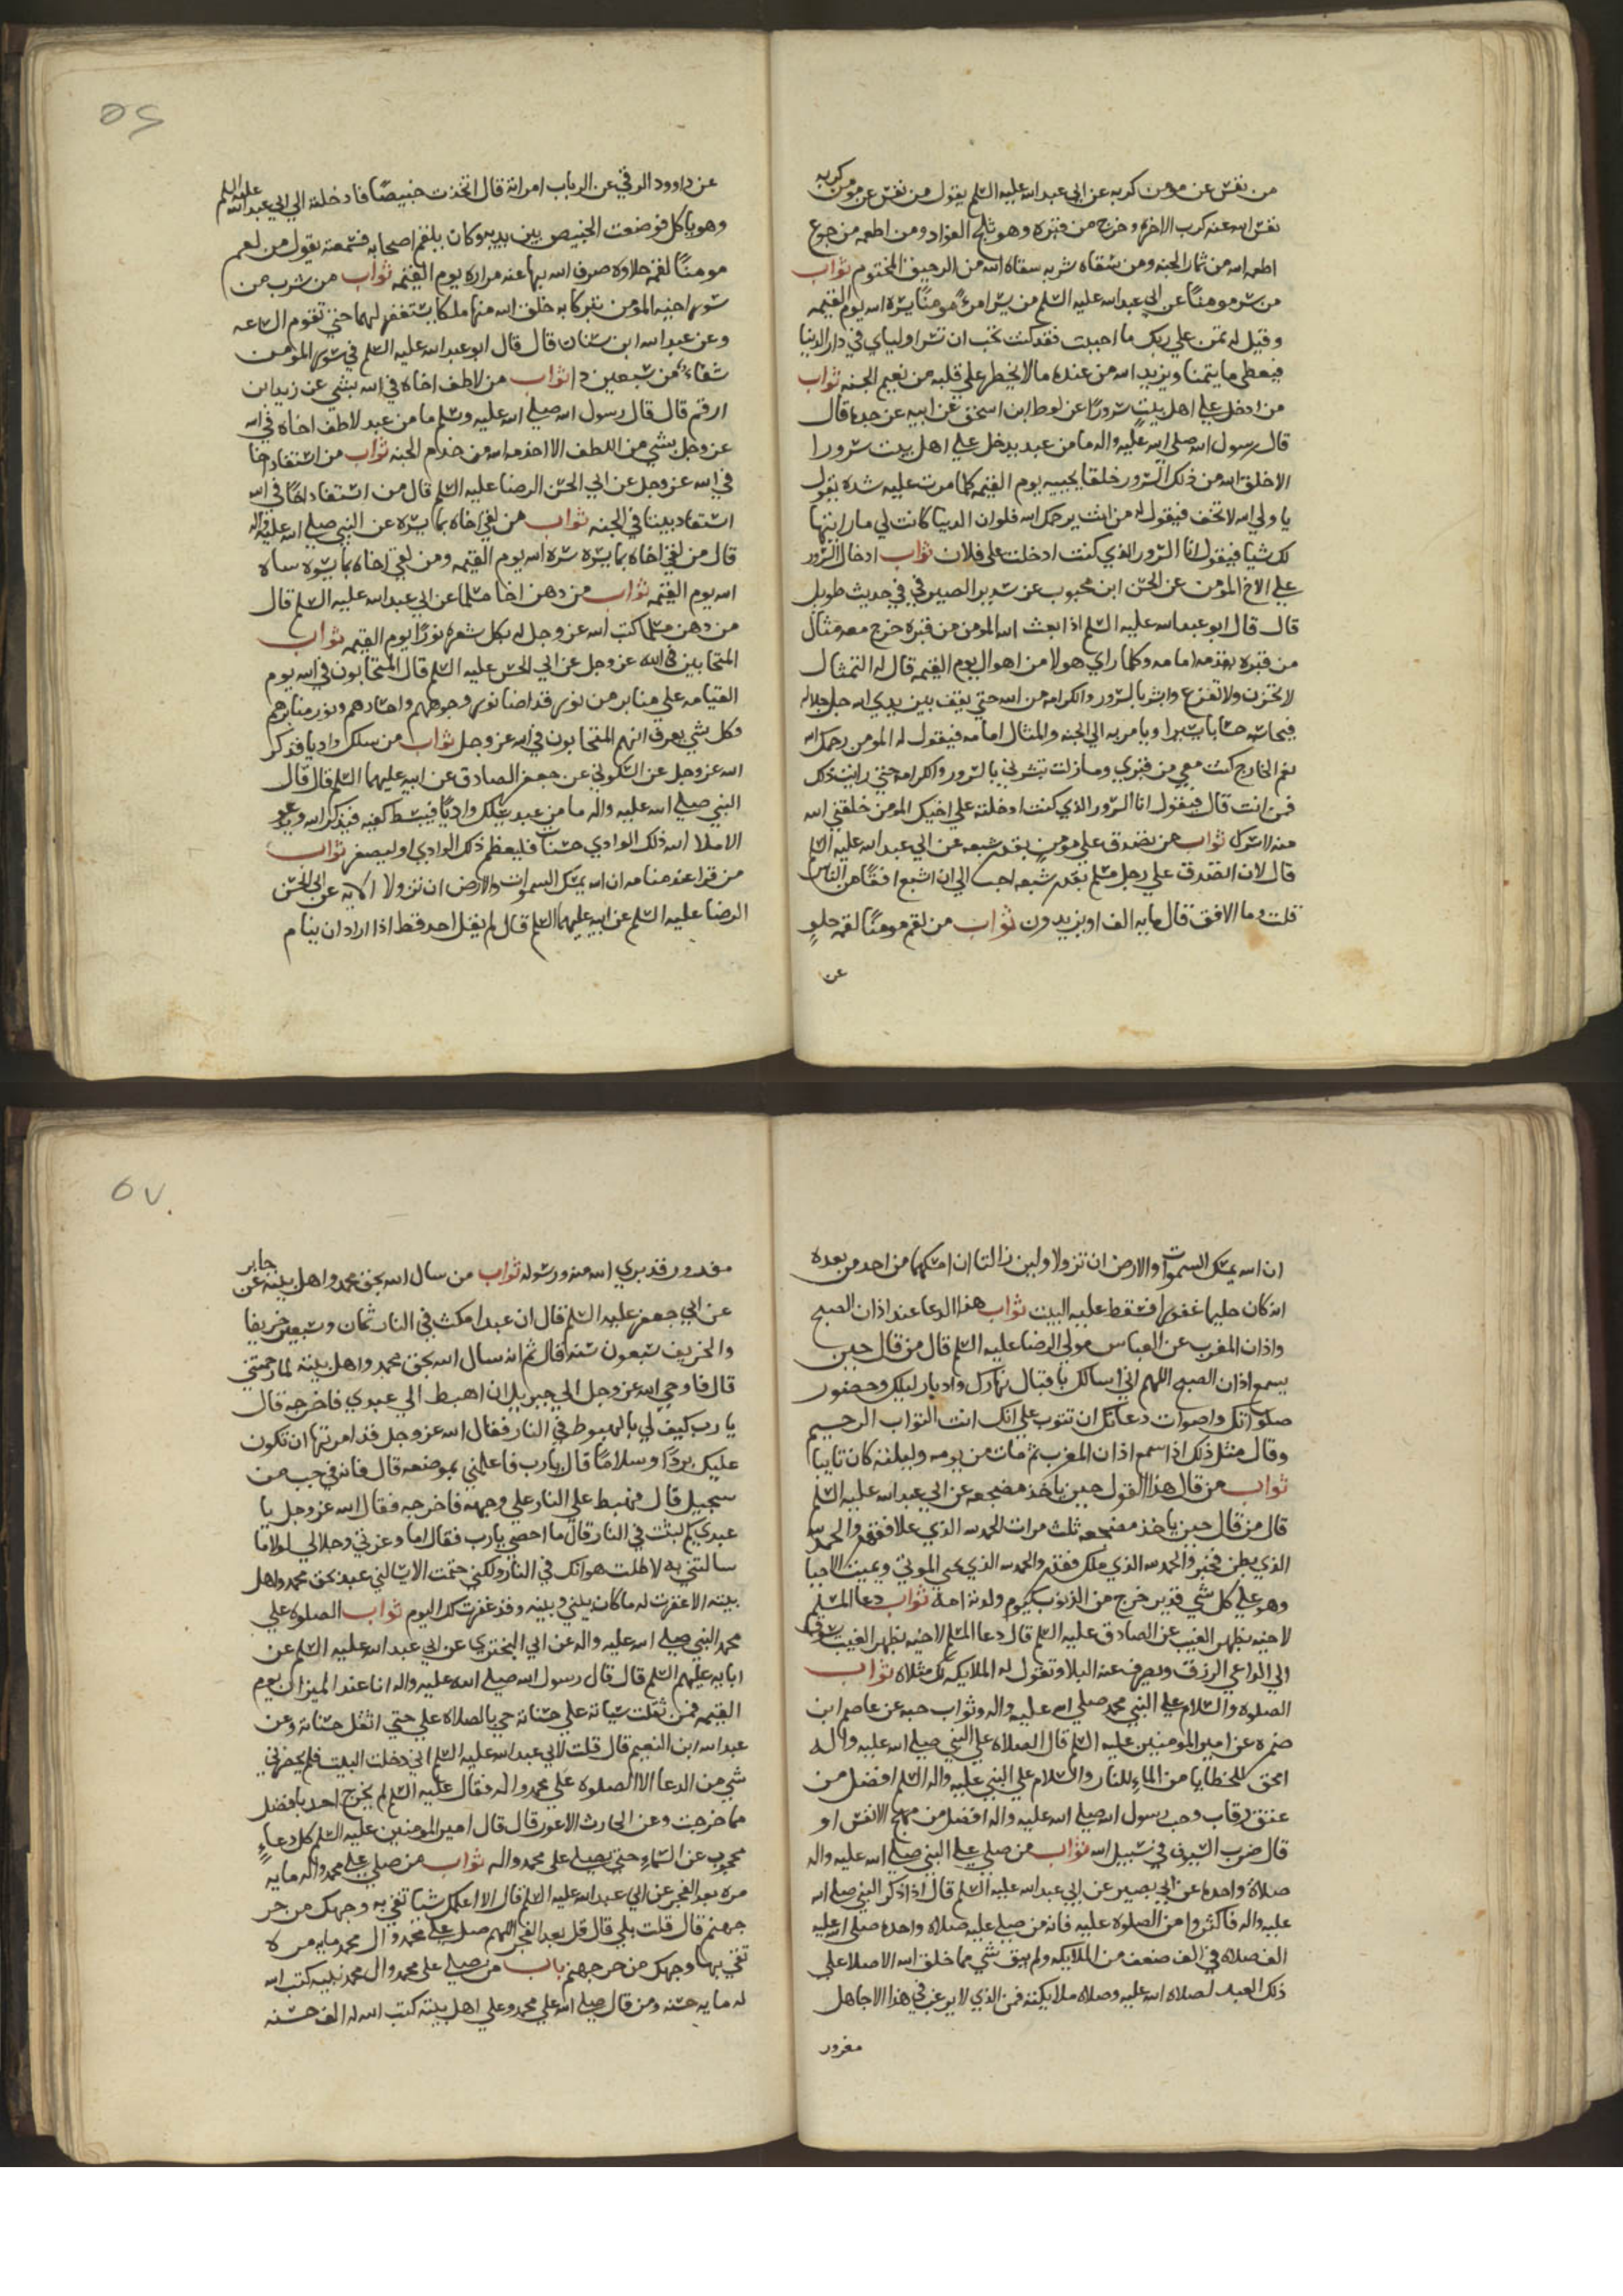 من نفس عن مومن كربه عن ابي عبدالله عليه السلم يقول من نفس عن مومن كربه
نفس الله عنه كرب الاخره وخرج من قبره وهو ثلج الفواد ومن اطعمه من جوع
اطعمه الله من ثمار الجنه ومن سقاه شربه سقاه الله من الرحيق المختوم ثواب
من سر مومنًا عن ابي عبدالله عليه السلم من سر امرءً مومنًا يسره الله يوم القيمه
وقيل له تمن علي ربك ما احببت فقد كنت تحب ان تسر اولياي في دار الدنيا
فيعطي ما يتمنا ويزيد الله من عنده ما لا يخطر علي قلبه من نعيم الجنه ثواب
من ادخل علي اهل بيت سرورًا عن لوط ابن اسحق عن ابيه عن جده قال
قال رسول الله صلي الله عليه واله ما من عبد يدخل علي اهل بيت سرورا
الا خلق الله من ذلك السرور خلقا يجييه يوم القيمه كلما مرت عليه شده يقول
يا ولي الله لا تخف فيقول له من انت يرحمك الله فلو ان الدينا كانت لي ما رايتها
لك شيا فيقول انا السرور الذي كنت ادخلت علي فلان ثواب ادخال السرور
علي الاخ المومن عن الحسن ابن محبوب عن سدير الصيرفي في حديث طويل
قال قال ابو عبدالله عليه السلم اذا بعث الله المومن من قبره خرج معه مثال
من قبره يقدمه امامه وكلما راي هولا من اهوال يوم القيمه قال له التمثال
لا تحزن ولا تفزع وابشر بالسرور والكرامه من الله حتي يقف بين يدي الله جل جلاله
فيحاسبه حسابا يسيرا ويامر به الي الجنه والمثال امامه فيقول له المومن رحمك الله
نعم الخارج كنت معي من قبري وما زلت تبشرني بالسرور والكرامه حتي رايت ذلك
فمن انت قال فيقول انا السرور الذي كنت ادخلته علي اخيك المومن خلقني الله
منه لابشرك ثواب من تصدق علي مومن بقدر شبعه عن ابي عبدالله عليه السلم
قال لان اتصدق علي رجل مسلم بقدر شبعه احب الي ان اشبع افقًا من الناس
قلت وما الافق قال مايه الف او يزيدون ثواب من لقم مومنًا لقمه حلو
عن
٥٦
عن داوود الرقي عن الرباب امراته قال اتخذت خبيصًا فادخلته الي ابي عبدالله عليه السلم
وهو ياكل فوضعت الخبيص بين يديه وكان يلقم اصحابه فسمعته يقول من لقم
مومنًا لقمه حلاوه صرف الله بها عنه مراره يوم القيمه ثواب من شرب من
سور اخيه المومن تبركا به خلق الله منها ملكا يستغفر لهما حتي تقوم الساعه
وعن عبدالله ابن سنان قال قال ابو عبدالله عليه السلم في سور المومن
شفاءً من سبعين دا ثواب من لاطف اخاه في الله بشي عن زيد ابن
ارقم قال قال رسول الله صلي الله عليه وسلم ما من عبد لاطف اخاه في الله
عز وجل بشي من اللطف الا اخدمه الله من خدام الجنه ثواب من استفاد اخا
في الله عز وجل عن ابي الحسن الرضا عليه السلم قال من استفاد اخًا في الله
استفاد بيتا في الجنه ثواب من لقي اخاه بما يسره عن النبي صلي الله عليه واله
قال من لقي اخاه بما يسره سره الله يوم القيمه ومن لقي اخاه بما يسوه ساه
الله يوم القيمه ثواب من دهن اخا مسلما عن ابي عبدالله عليه السلم قال
من دهن مسلما كتب الله عز وجل له بكل شعره نورًا يوم القيمه ثواب
المتحابين في الله عز وجل عن ابي الحسن عليه السلم قال المتحابون في الله يوم
القيامه علي منابر من نور قد اضا نور وجوههم واجسادهم ونور منابرهم
وكل شي يعرف انهم المتحابون في الله عز وجل ثواب من سلك واديا فذكر
الله عز وجل عن السكوني عن جعفر الصادق عن ابيه عليهما السلم قال قال
النبي صلي الله عليه واله ما من عبد يسلك واديًا فيبسط كفيه فيذكر الله ويدعو
الا ملا الله ذلك الوادي حسنات فليعظم ذلك الوادي او ليصغر ثواب
من قرا عند منامه ان الله يمسك السموات والارض ان تزولا الايه عن ابي الحسن
الرضا عليه السلم عن ابيه عليهما السلم قال لم يقل احد قط اذا اراد ان ينام
ان الله يمسك السموات والارض ان تزولا ولين زالتا ان امسكهما من احد من بعده
انه كان حليما غفورا فسقط عليه البيت ثواب هذا الدعا عند اذان الصبح
واذان المغرب عن العباس مولي الرضا عليه السلم قال من قال حين
يسمع اذان الصبح اللهم اني اسالك باقبال نهارك وادبار ليلك وحضور
صلواتك واصوات دعاتك ان تتوب علي انك انت التواب الرحيم
وقال مثل ذلك اذا سمع اذان المغرب ثم مات من يومه وليلته كان تايبا
ثواب من قال هذا القول حين ياخذ مضجعه عن ابي عبدالله عليه السلم
قال من قال حين ياخذ مضجعه ثلث مرات الحمد لله الذي علا فقهر والحمد لله
الذي بطن فخبر والحمد لله الذي ملك فقدر والحمد لله الذي يحيي الموتي ويميت الاحيا
وهو علي كل شي قدير خرج من الذنوب كيوم ولدته امه ثواب دعا المسلم
لاخيه بظهر الغيب عن الصادق عليه السلم قال دعا المسلم لاخيه بظهر الغيب يسوق
الي الداعي الرزق ويصرف عنه البلا وتقول له الملايكه لك مثلاه ثواب
الصلوه والسلام علي النبي محمد صلي الله عليه واله وثواب حبه عن عاصم ابن
ضمره عن امير المومنين عليه السلم قال الصلاه علي النبي صلي الله عليه واله
امحق للخطايا من الماء للنار والسلام علي النبي عليه واله السلم افضل من
عتق رقاب وحب رسول الله صلي الله عليه واله افضل من مهج الانفس او
قال ضرب السيوف في سبيل الله ثواب من صلي علي النبي صلي الله عليه واله
صلاة واحده عن ابي بصير عن ابي عبدالله عليه السلم قال اذا ذكر النبي صلي الله
عليه واله فاكثروا من الصلوه عليه فانه من صلي عليه صلاه واحده صلي الله عليه
الف صلاه في الف صنف من الملايكه ولم يبق شي مما خلق الله الا صلا علي
ذلك العبد لصلاه الله عليه وصلاه ملايكته فمن الذي لا يرغب في هذا الا جاهل
مغرور
٥٧
مغرور قد بري الله منه ورسوله ثواب من سال الله بحق محمد واهل بيته عن جابر
عن ابي جعفر عليه السلم قال ان عبدا مكث في النار ثمان وسبعين خريفا
والخريف سبعون سنه قال ثم انه سال الله بحق محمد واهل بيته لما رحمتني
قال فاوحي الله عز وجل الي جبريل ان اهبط الي عبدي فاخرجه قال
يا رب كيف لي بالهبوط في النار فقال الله عز وجل قد امرتها ان تكون
عليك بردًا وسلامًا قال يا رب فاعلمني بموضعه قال فانه في جب من
سجيل قال فهبط علي النار علي وجهه فاخرجه فقال الله عز وجل يا
عبدي كم لبثت في النار قال ما احصي يا رب فقال اما وعزتي وجلالي لولا ما
سالتني به لاطلت هوانك في النار ولكني حتمت الا يسالني عبد بحق محمد واهل
بيته الا غفرت له ما كان بيني وبينه وقد غفرت لك اليوم ثواب الصلوه علي
محمد النبي صلي الله عليه واله عن ابي البختري عن ابي عبدالله عليه السلم عن
ابايه عليهم السلم قال قال رسول الله صلي الله عليه واله انا عند الميزان يوم
القيمه فمن ثقلت سياته علي حسناته جي بالصلاه علي حتي اثقل حسناته وعن
عبدالله ابن النعيم قال قلت لابي عبدالله عليه السلم اني دخلت البيت فلم يحضرني
شي من الدعا الا الصلوه علي محمد واله فقال عليه السلم لم يخرج احد بافضل
مما خرجت وعن الحارث الاعور قال قال امير المومنين عليه السلم كل دعاءٍ
محجوب عن السماء حتي يصلي علي محمد واله ثواب من صلي علي محمد واله مايه
مره بعد الفجر عن ابي عبدالله عليه السلم قال الا اعلمك شيا تقي به وجهك من حر
جهنم قال قلت بلي قال قل بعد الفجر اللهم صل علي محمد وال محمد مايه مره
تقي بها وجهك من حر جهنم باب من يصلي علي محمد وال محمد نبيه كتب الله
له مايه حسنه ومن قال صلي الله علي محمد وعلي اهل بيته كتب الله له الف حسنه